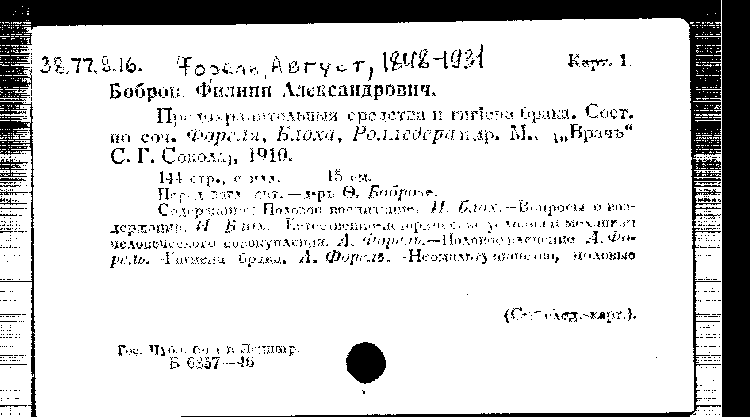 38.77.8.16. Форель, Август, 1848-1931 Карт. 1.
Бобров, Филипп Александрович.
Предохранительныя средства и гигіена брака. Сост.
по соч. Фореля, Блоха,Ролледера и др. М., „Врачъ“
С. Г. Соколд, 1910.
144 стр., с илл. 18 см.
Перед загл. авт. — д-ръ Ѳ. Бобровъ.
Содержание: Половое воспитание. И. Блох. — Вопросы о воз-
держании. И. Блох. человеческого совокупления. А. Форель. — Половое влечение. А. Фо-
рель. — Гигиена брака. А. Форель. — половые
(См. след. карт.).
Гос. Публ. б-ка в Ленингр.
Б 6357—46